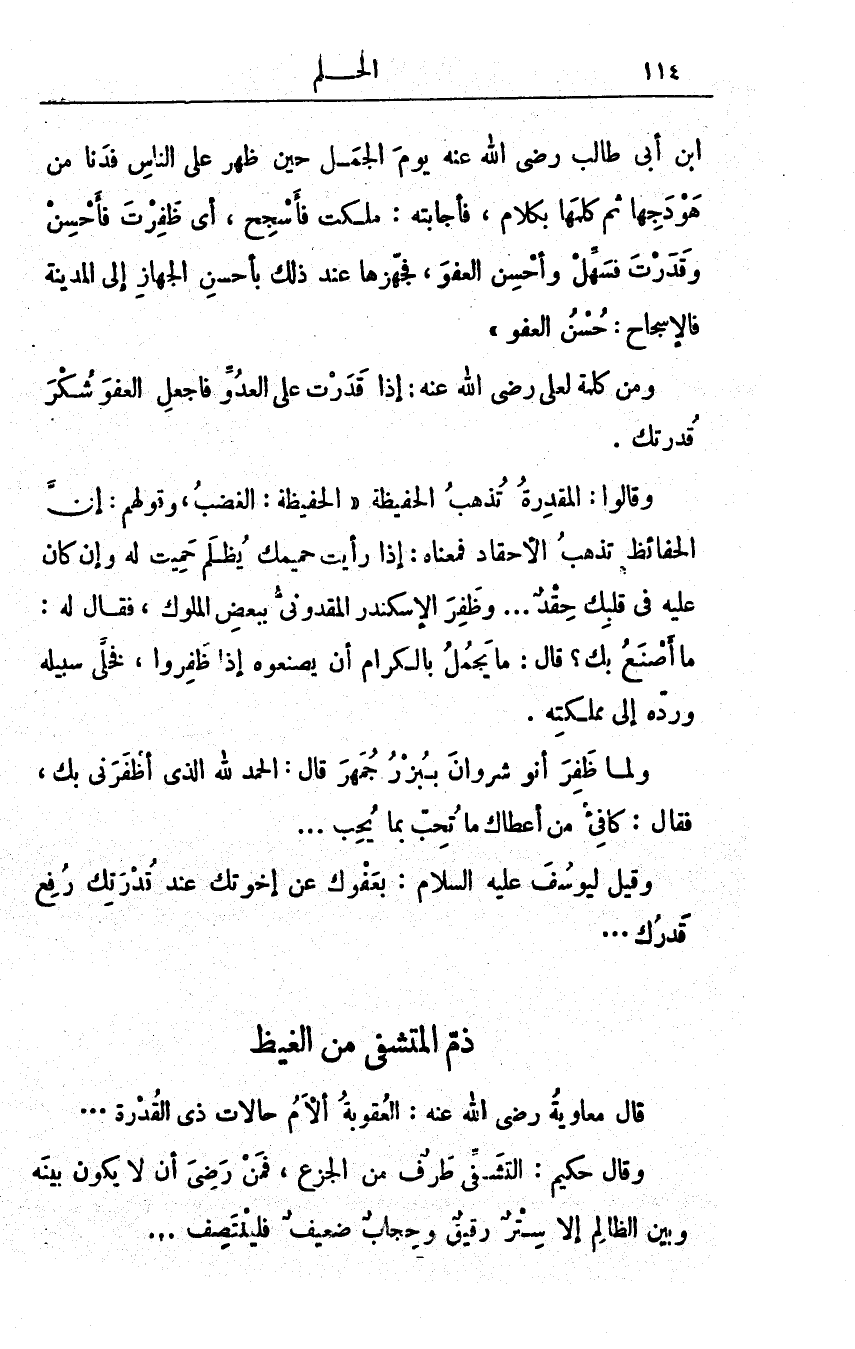 ١١٤ الحلم
ابن أبى طالب رضى الله عنه يومَ الجمَل حين ظهر على الناسِ فدَنا من
هَوْدَجِها ثم كلمَها بكلام ، فأجابته : ملكت فأَسْجِح ، أى ظَفِرْتَ فأَحْسِنْ
وقَدَرْتَ فسَهِّلْ وأحْسِن العفوَ ، فجهّزها عند ذلك بأحسنِ الجهازِ إلى المدينة
فالإسجاح : حُسْنُ العفو »
ومن كلمة لعلى رضى الله عنه : إذا قَدَرْت على العدُوِّ فاجعلِ العفوَ شُكْرَ
قُدرتك .
وقالوا : المقدِرةُ تُذهبُ الحفيظة « الحفيظة : الغضبُ ، وتولهم : إنَّ
الحفائظِ تذهبُ الأحقاد فمعناه : إذا رأيت حميمك يُظلَم حَمِيت له وإن كان
عليه فى قلبِك حِقْدٌ ... وظَفِرَ الإسكندر المقدونىُّ ببعضِ الملوك ، فقال له :
ما أَصْنَعُ بك ؟ قال : ما يَجمُلُ بالكرام أن يصنعوه إذا ظَفِروا ، فخلَّى سبيله
وردّه إلى مملكتِه .
ولما ظَفِرَ أنو شروانَ ببُزْرُجُمَهرَ قال : الحمد لله الذى أظْفَرَنى بك ،
فقال : كافِئْ من أعطاك ما تُحِبّ بما يُحِب ...
وقيل ليوسُفَ عليه السلام : بعَفْوك عن إخوتك عند تُدْرَتِك رُفِع
قَدرُك ...
ذمّ المتشفى من الغيظ
قال معاويةُ رضى الله عنه : العُقوبةُ ألأمُ حالات ذى القُدْرة ...
وقال حكيم : التشفِّى طَرفٌ من الجزع ، فمَنْ رَضِىَ أن لا يكون بينَه
وبين الظالِم إلا سِتْرٌ رقيقٌ وحِجابٌ ضعيفٌ فليَنْتَصِف ...